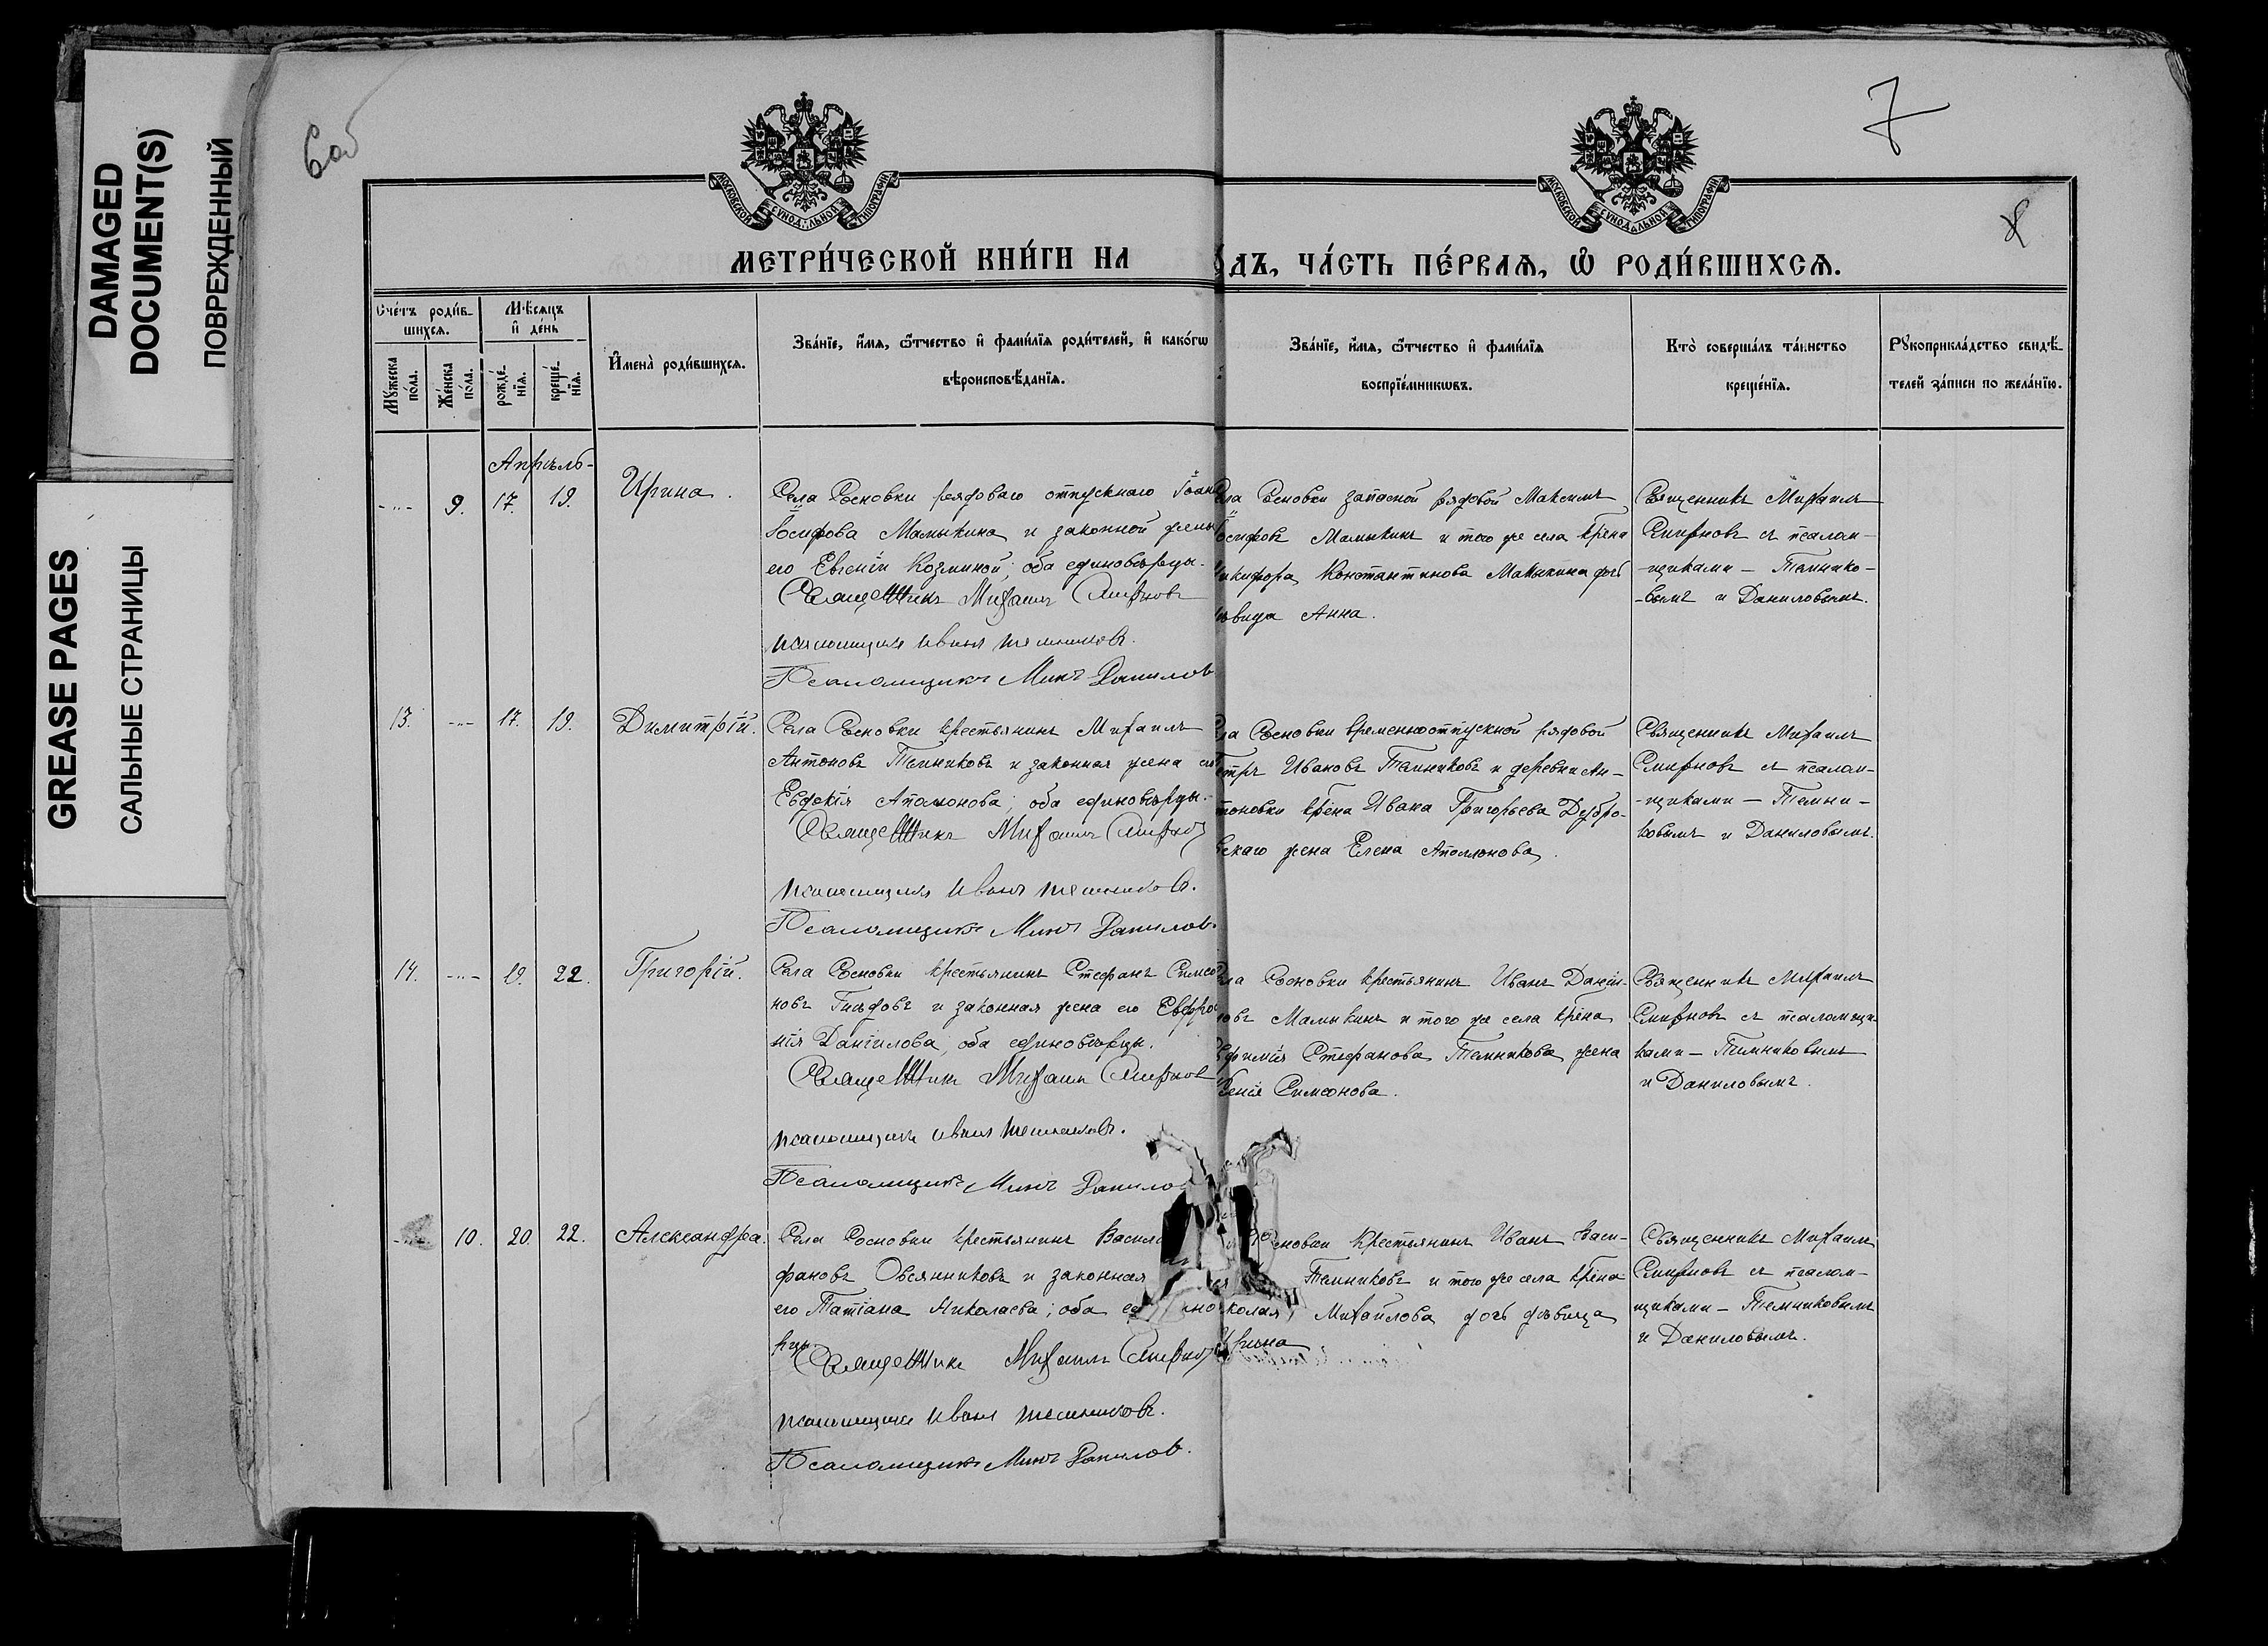 DAMAGED
DOCUMENT(S)
ПОВРЕЖДЕННЫЙ
GREASE PAGES
САЛЬНЫЕ СТРАНИЦЫ
6об
7
8
МОСКОВСКОЙ СУНОДАЛЬНОЙ ТИПОГРАФИИ
МОСКОВСКОЙ СУНОДАЛЬНОЙ ТИПОГРАФИИ
МЕТРИ́ЧЕСКОЙ КНИ́ГИ НА
ДЪ, ЧА́СТЬ ПЕ́РВАѦ, Ѡ҆ РОДИ́ВШИХСѦ.
Сче́тъ роди́в-
шихсѧ.
Мꙋжеска
по́ла.
Же́нска
по́ла.
Мѣ́сѧцъ
и҆ де́нь
рожде́-
нїѧ.
креще́-
нїѧ.
И҆мена̀ роди́вшихсѧ.
Зва́нїе, и҆́мѧ, ѻ҆́тчество и҆ фами́лїѧ роди́телей, и҆ како́гѡ
вѣроисповѣ́данїѧ.
Зва́нїе, и҆́мѧ, ѻ҆́тчество и҆ фами́лїѧ
воспрїе́мникѡвъ.
Кто̀ соверша́лъ та́инство
креще́нїѧ.
Рꙋкоприкла́дство свидѣ́-
телей за́писи по жела́нїю.
Апрѣль-
-"- 9. 17. 19. Ирина.
Села Сосновки рядоваго отпускнаго Іоанн
Іосифова Мамыкина и законной жены
его Евгеніи Козминой; оба единовѣрцы.
Священникъ Михаилъ Смирновъ
псаломщикъ Иванъ Темниковъ.
Псаломщикъ Минъ Данилов
ла Сосновки запасной рядовой Максимъ
Іосифовъ Мамыкинъ и того же села кр-на
икифора Константинова Мамыкина дочь
ѣвица Анна.
Священникъ Михаилъ
Смирновъ съ псалом-
-щиками - Темнико-
-вымъ и Даниловымъ.
13. -"- 17. 19. Димитрій.
Села Сосновки крестьянинъ Михаилъ
Антоновъ Темниковъ и законная жена его
Евдокія Аполонова; оба единовѣрцы.
Священникъ Михаилъ Смирнов
псаломщикъ Иванъ Темниковъ.
Псаломщикъ Минъ Данилов.
ла Сосновки временноотпускной рядовой
етръ Ивановъ Темниковъ и деревни Ан-
тоновки кр-на Ивана Григорьева Дубро-
вскаго жена Елена Аполлонова.
Священникъ Михаилъ
Смирновъ съ псалом-
-щиками - Темни-
ковымъ и Даниловымъ.
14. -"- 19. 22. Григорій.
Села Сосновки крестьянинъ Стефанъ Симео
новъ Гнѣдовъ и законная жена его Евфро
нія Даніилова; оба единовѣрцы.
Священникъ Михаилъ Смирнов
псаломщикъ Иванъ Темниковъ.
Псаломщикъ Минъ Данило
ела Сосновки крестьянинъ Иванъ Даніи-
ловъ Мамыкинъ и того же села кр-на
Ефимія Стефанова Темникова жена
Симеонова.
Священникъ Михаилъ
Смирновъ съ псаломщи-
ками - Темниковымъ
и Даниловымъ.
-"- 10. 20. 22. Александра.
Села Сосновки крестьянинъ Васил
фановъ Овсянниковъ и законная
его Татіана Николаева; оба едино
рцы.
Священникъ Михаилъ Смирнов
псаломщикъ Иванъ Темниковъ.
Псаломщикъ Минъ Данилов.
сновки крестьянинъ Иванъ Васи-
Темниковъ и того же села кр-на
колая Михайлова дочь дѣвица
Ирина
Священникъ Михаилъ
Смирновъ съ псалом-
щиками - Темниковымъ
и Даниловымъ.